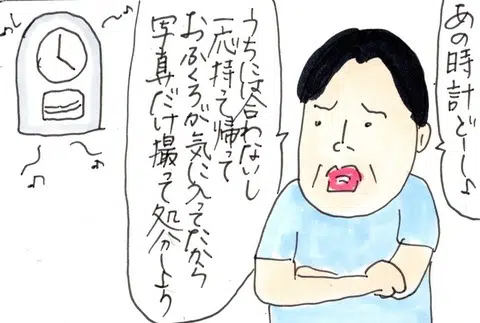 あの時計どーしよ
うちには合わないし
一応持って帰って
おふくろが気に入ってたから
写真だけ撮って処分しより